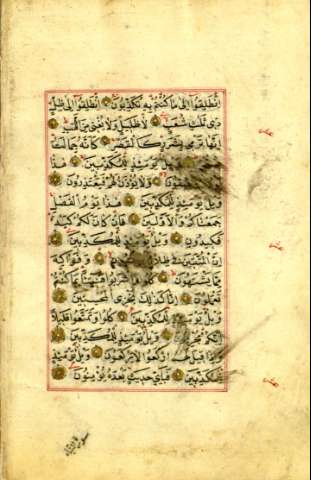 اِنْطَلِقُوا اِلٰى مَا كُنْتُمْ بِهِ تُكَذِّبُونَ اِنْطَلِقُوا اِلٰى ظِلٍّ
ذِى ثَلٰثِ شُعَبٍ لَا ظَلِيلٍ وَلَا يُغْنِى مِنَ اللَّهَبِ
اِنَّهَا تَرْمِى بِشَرَرٍ كَالْقَصْرِ كَاَنَّهُ جِمَالَتٌ
وَيْلٌ يَوْمَئِذٍ لِلْمُكَذِّبِينَ هٰذَا
وَلَا يُؤْذَنُ لَهُمْ فَيَعْتَذِرُونَ
وَيْلٌ يَوْمَئِذٍ لِلْمُكَذِّبِينَ هٰذَا يَوْمُ الْفَصْلِ
جَمَعْنَاكُمْ وَالْاَوَّلِينَ فَاِنْ كَانَ لَكُمْ كَيْدٌ
فَكِيدُونِ وَيْلٌ يَوْمَئِذٍ لِلْمُكَذِّبِينَ
اِنَّ الْمُتَّقِينَ فِى ظِلَالٍ وَفَوَاكِهَ
مِمَّا يَشْتَهُونَ كُلُوا وَاشْرَبُوا هَنِيئًا بِمَا كُنْتُمْ
تَعْمَلُونَ اِنَّا كَذٰلِكَ نَجْزِى الْمُحْسِنِينَ
وَيْلٌ يَوْمَئِذٍ لِلْمُكَذِّبِينَ كُلُوا وَتَمَتَّعُوا قَلِيلًا
اِنَّكُمْ مُجْرِمُونَ وَيْلٌ يَوْمَئِذٍ لِلْمُكَذِّبِينَ
وَاِذَا قِيلَ لَهُمُ ارْكَعُوا لَا يَرْكَعُونَ وَيْلٌ يَوْمَئِذٍ
لِلْمُكَذِّبِينَ فَبِاَىِّ حَدِيثٍ بَعْدَهُ يُؤْمِنُونَ